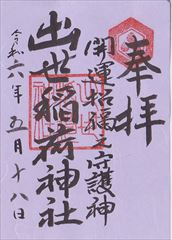 奉拝
開運招福之守護神
出世稲荷神社
令和六年五月十八日